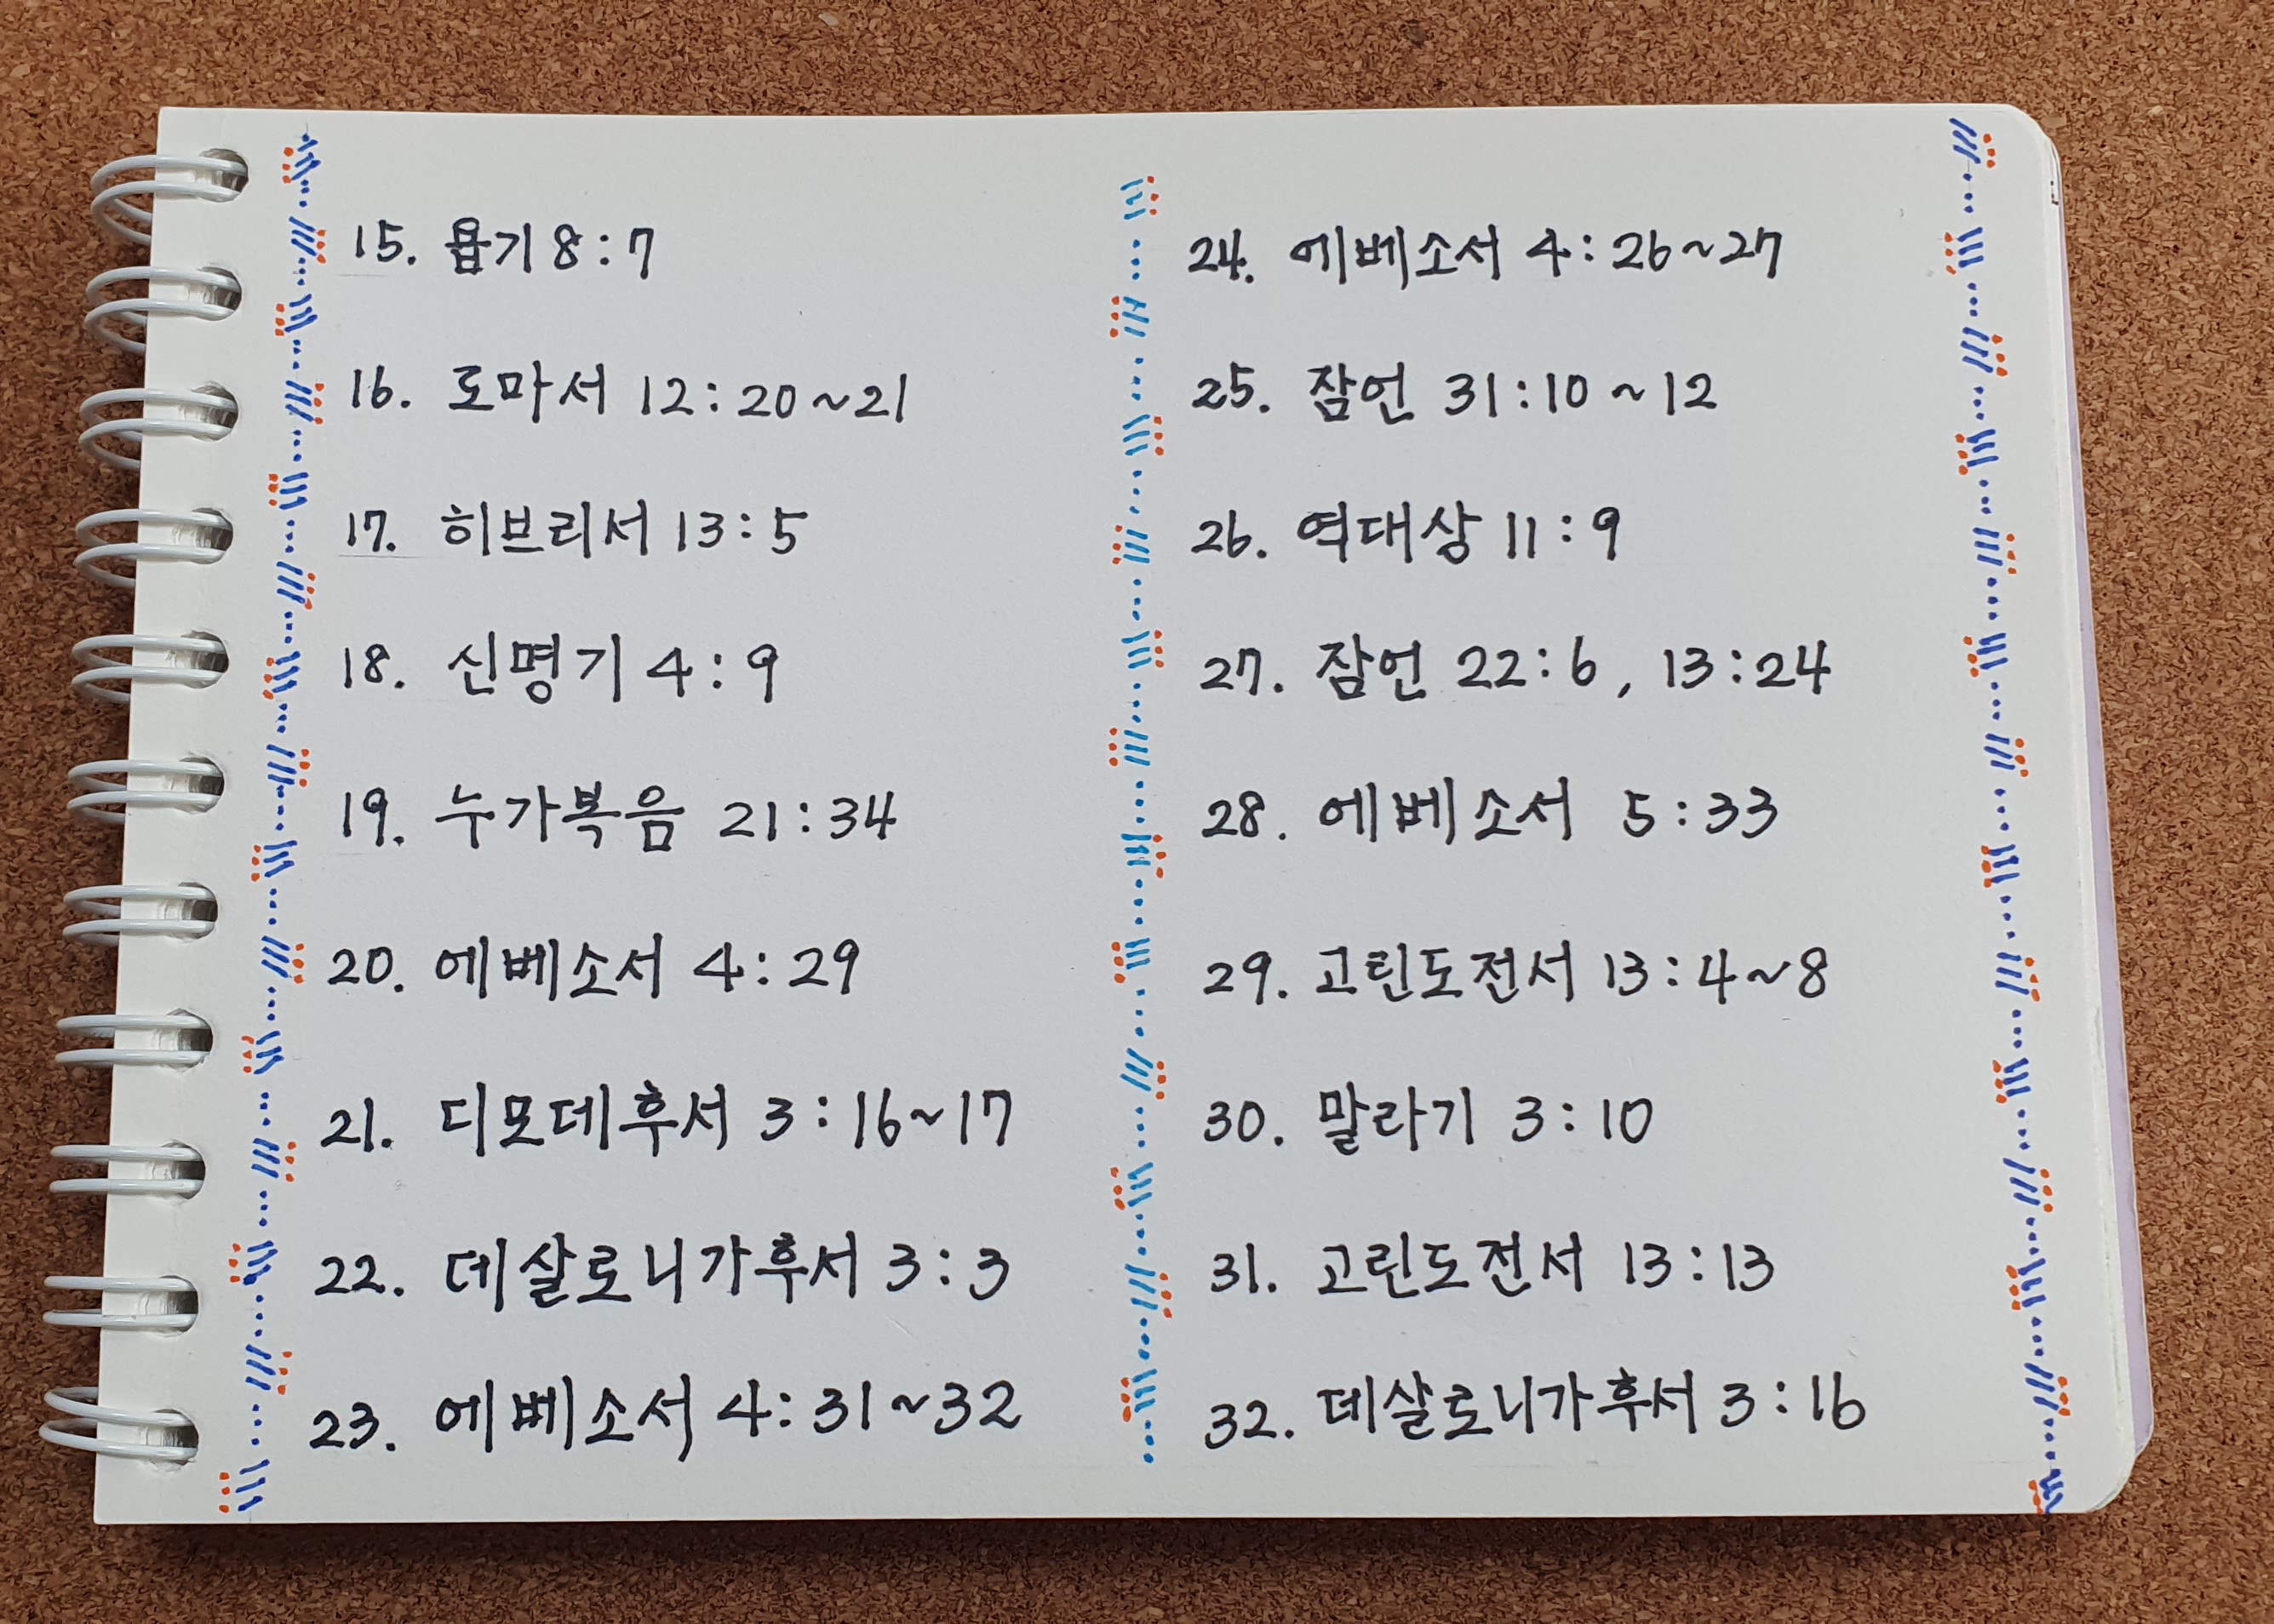 15. 욥기 8:7
16. 로마서 12:20~21
17. 히브리서 13:5
18. 신명기 4:9
19. 누가복음 21:34
20. 에베소서 4:29
21. 디모데후서 3:16~17
22. 데살로니가후서 3:3
23. 에베소서 4:31~32
24. 에베소서 4:26~27
25. 잠언 31:10~12
26. 역대상 11:9
27. 잠언 22:6, 13:24
28. 에베소서 5:33
29. 고린도전서 13:4~8
30. 말라기 3:10
31. 고린도전서 13:13
32. 데살로니가후서 3:16